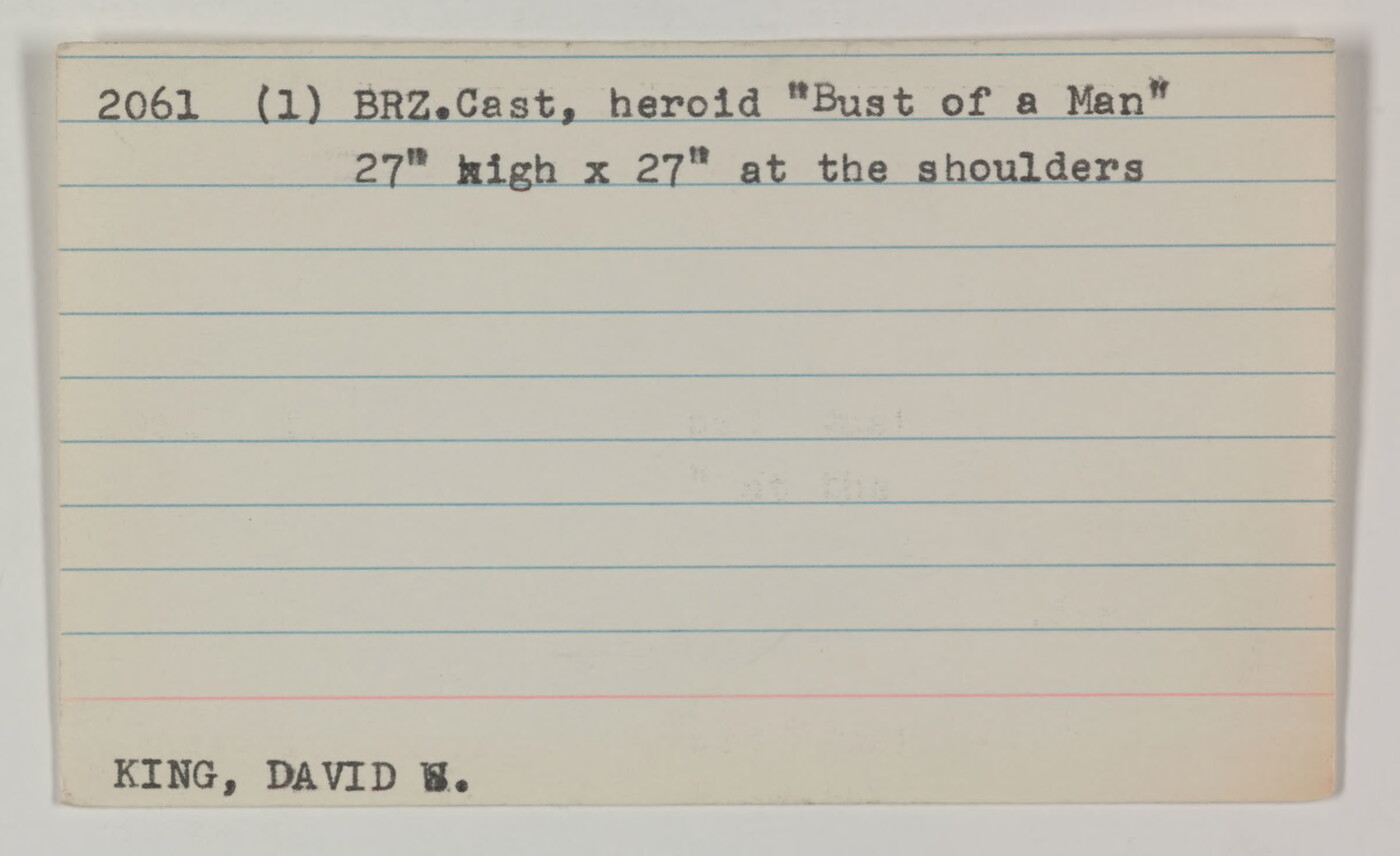 2061 (1) BRZ.Cast, heroid "Bust of a Man"
27" high x 27" at the shoulders
KING, DAVID